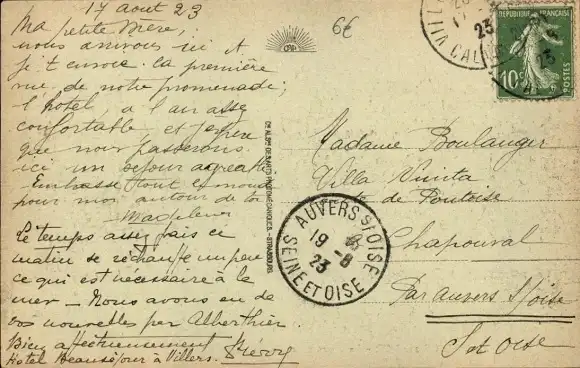 17 aout 23
Ma petite Mère,
nous arrivons ici et
je t'envoie la première
vue de notre promenade;
l'hôtel a l'air assez
confortable, et j'espère
que nous passerons
ici un séjour agréable
embrasse tout le monde
pour nous autour de toi
Madeleine
Le temps assez frais ce
matin se réchauffe un peu
ce qui est nécessaire à la
mer - Nous avons eu de
vos nouvelles par Alberthier.
Bien affectueusement
Hotel Beauséjour à Villers.
6€
CIE ALSNE DES ARTS PHOTOMÉCANIQUES - STRASBOURG
RÉPUBLIQUE FRANÇAISE
10c
POSTES
VILL
CALV
23
AUVERS S/ OISE
19 -8
23
SEINE ET OISE
Madame Boulanger
Villa
de Pontoise
Chaponval
Par Auvers s/oise
S et Oise